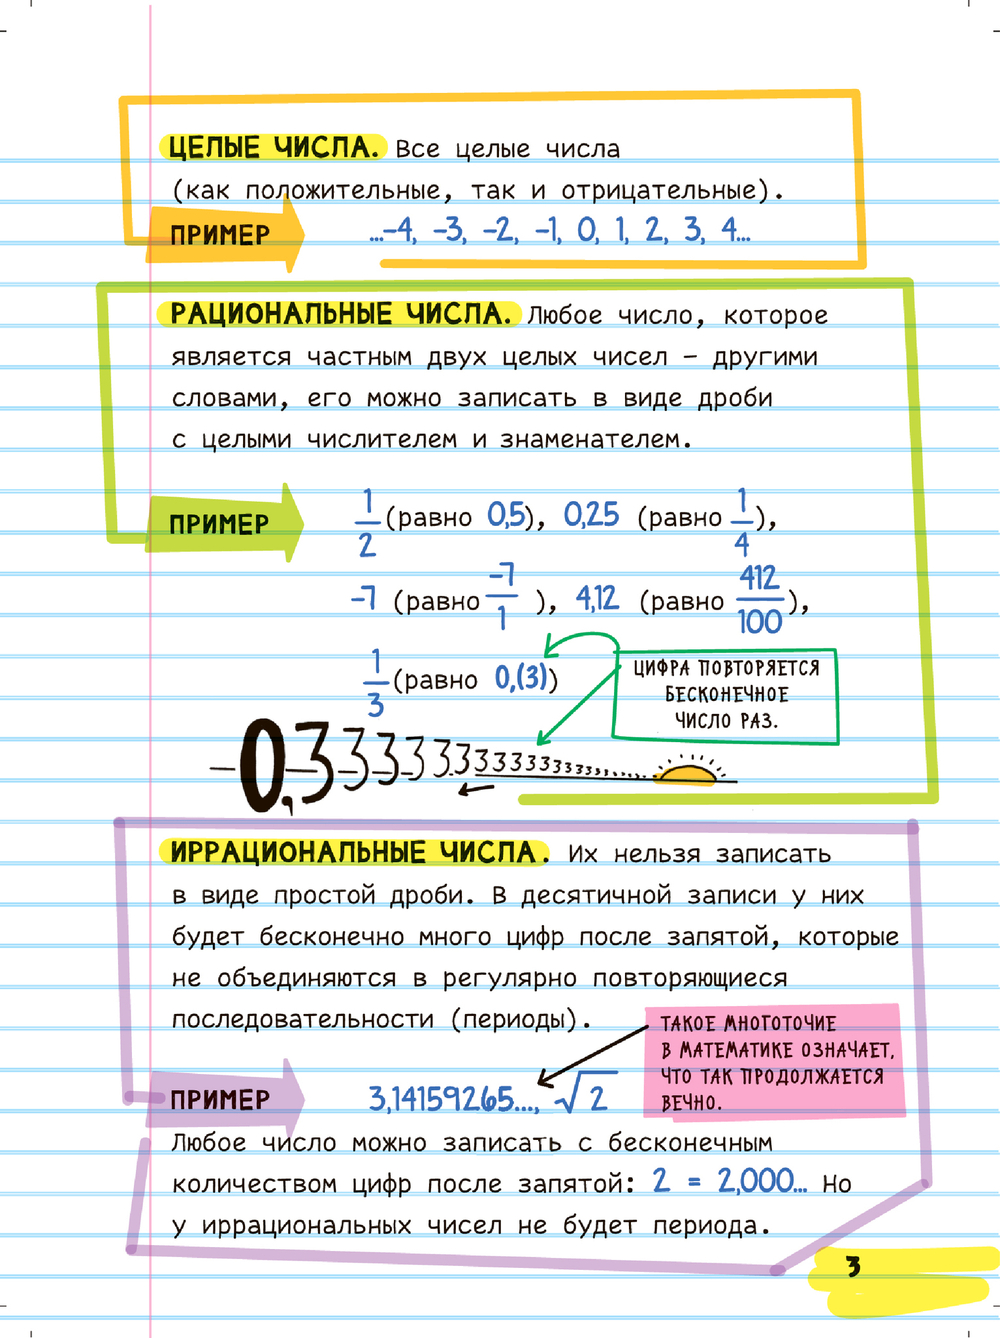 ЦЕЛЫЕ ЧИСЛА. Все целые числа
(как положительные, так и отрицательные).
ПРИМЕР ...-4, -3, -2, -1, 0, 1, 2, 3, 4...
РАЦИОНАЛЬНЫЕ ЧИСЛА. Любое число, которое
является частным двух целых чисел – другими
словами, его можно записать в виде дроби
с целыми числителем и знаменателем.
ПРИМЕР 1/2 (равно 0,5), 0,25 (равно 1/4),
-7 (равно -7/1 ), 4,12 (равно 412/100),
1/3 (равно 0,(3))
ЦИФРА ПОВТОРЯЕТСЯ
БЕСКОНЕЧНОЕ
ЧИСЛО РАЗ.
0,33333333333333333333......
ИРРАЦИОНАЛЬНЫЕ ЧИСЛА. Их нельзя записать
в виде простой дроби. В десятичной записи у них
будет бесконечно много цифр после запятой, которые
не объединяются в регулярно повторяющиеся
последовательности (периоды).
ТАКОЕ МНОГОТОЧИЕ
В МАТЕМАТИКЕ ОЗНАЧАЕТ,
ЧТО ТАК ПРОДОЛЖАЕТСЯ
ВЕЧНО.
ПРИМЕР 3,14159265..., √2
Любое число можно записать с бесконечным
количеством цифр после запятой: 2 = 2,000... Но
у иррациональных чисел не будет периода.
3